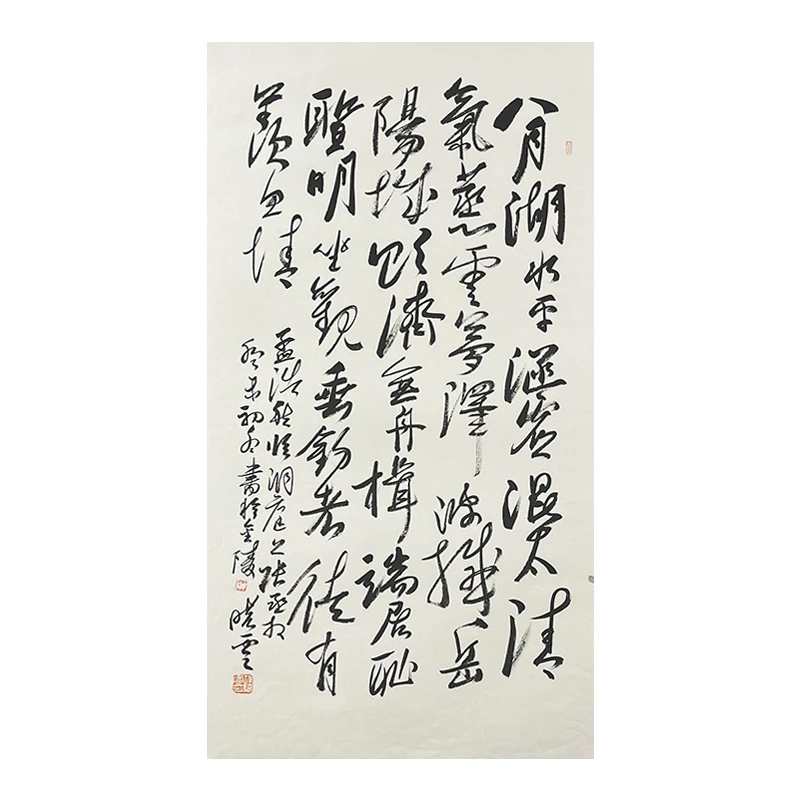 八月湖水平涵虛混太清
氣蒸雲夢澤波撼岳
陽城欲濟無舟楫端居耻
聖明坐觀垂釣者徒有
羨魚情
孟浩然臨洞庭上張丞相
癸未初冬書於金陵 曉雲